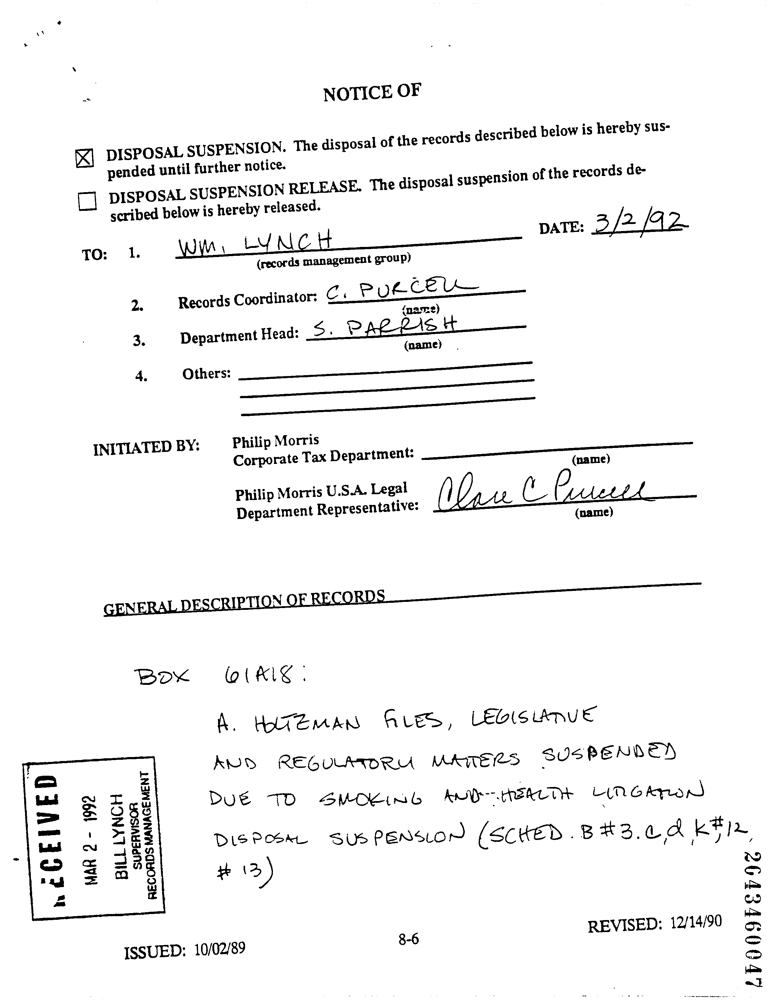 NOTICE OF
☒ DISPOSAL SUSPENSION. The disposal of the records described below is hereby sus-
pended until further notice.
☐ DISPOSAL SUSPENSION RELEASE. The disposal suspension of the records de-
scribed below is hereby released.
DATE: 3/2/92
TO: 1. WM. LYNCH
(records management group)
2. Records Coordinator: C. PURCELL
(name)
3. Department Head: S. PARRISH
(name)
4. Others:
INITIATED BY: Philip Morris
Corporate Tax Department:
(name)
Philip Morris U.S.A. Legal
Department Representative: Clare C Purcell
(name)
GENERAL DESCRIPTION OF RECORDS
BOX 61A18:
A. HOLTZMAN FILES, LEGISLATIVE
AND REGULATORY MATTERS SUSPENDED
DUE TO SMOKING AND HEALTH LITIGATION
DISPOSAL SUSPENSION (SCHED. B #3.c,d, k #12,
# 13)
RECEIVED
MAR 2 - 1992
BILL LYNCH
SUPERVISOR
RECORDS MANAGEMENT
ISSUED: 10/02/89
8-6
REVISED: 12/14/90
2043460047